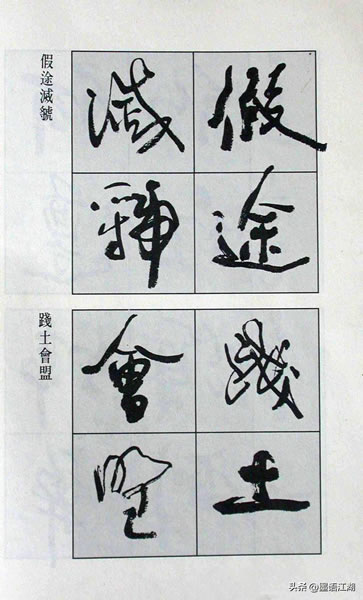 假途
滅虢
假途滅虢
踐土
會盟
踐土會盟
头条